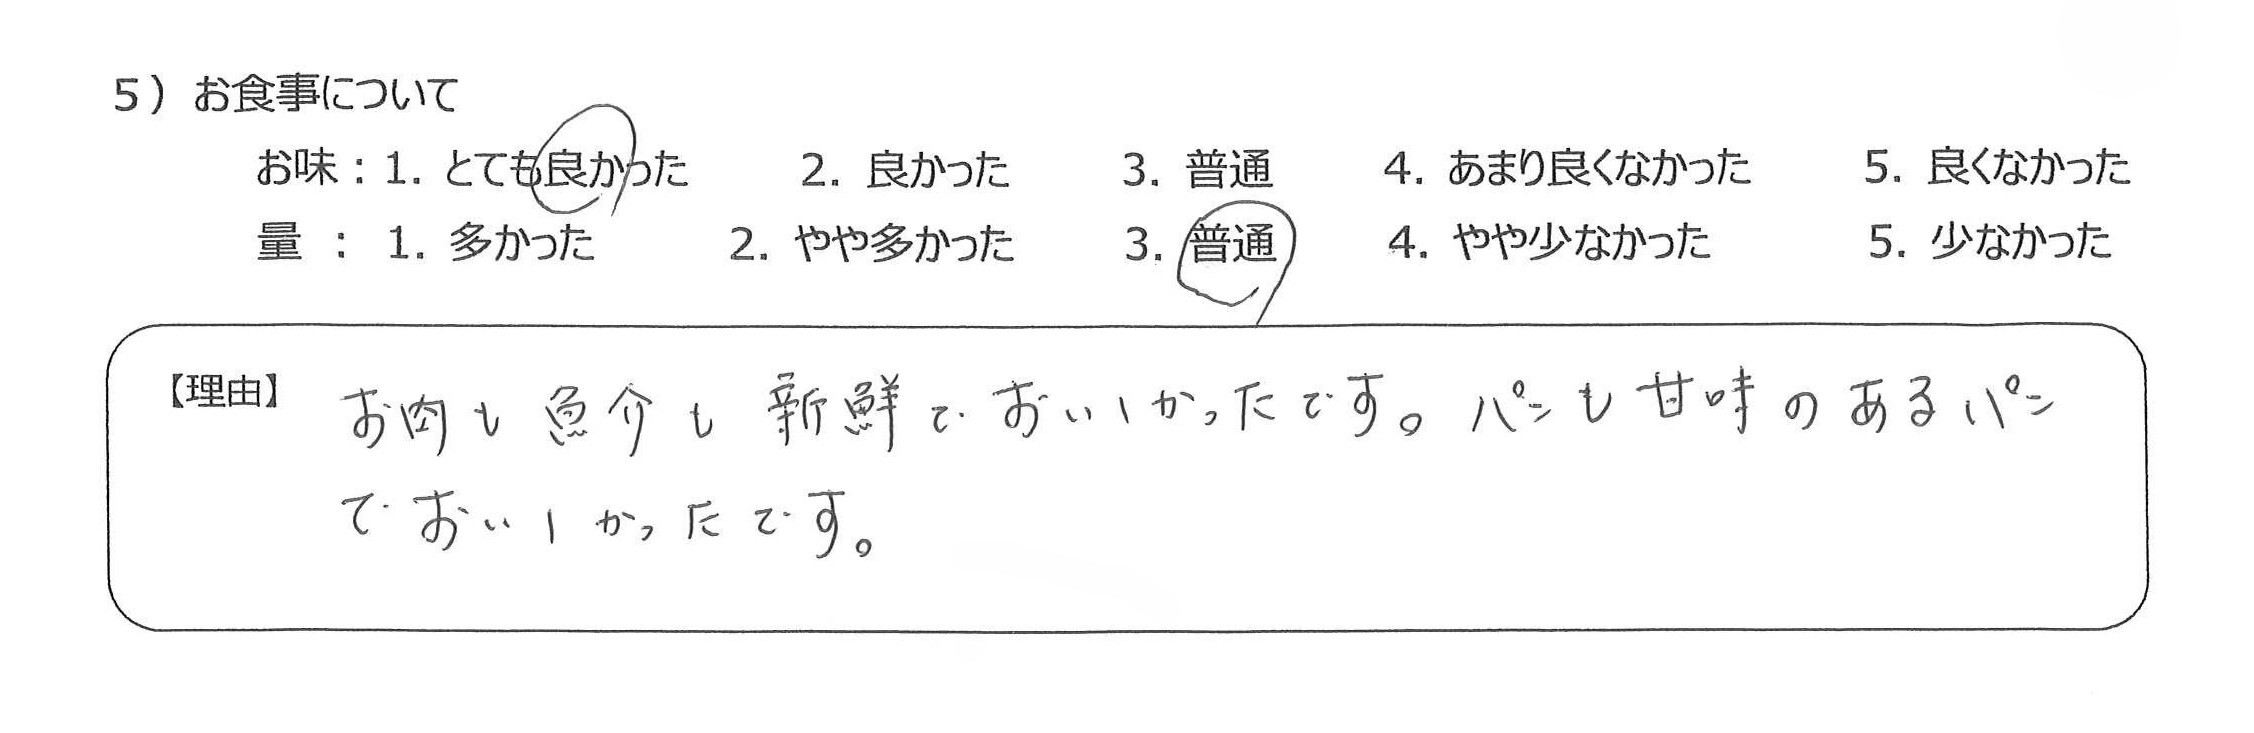 5）お食事について
お味：1. とても良かった　2. 良かった　3. 普通　4. あまり良くなかった　5. 良くなかった
量：1. 多かった　2. やや多かった　3. 普通　4. やや少なかった　5. 少なかった
【理由】お肉も魚介も新鮮でおいしかったです。パンも甘味のあるパン
でおいしかったです。